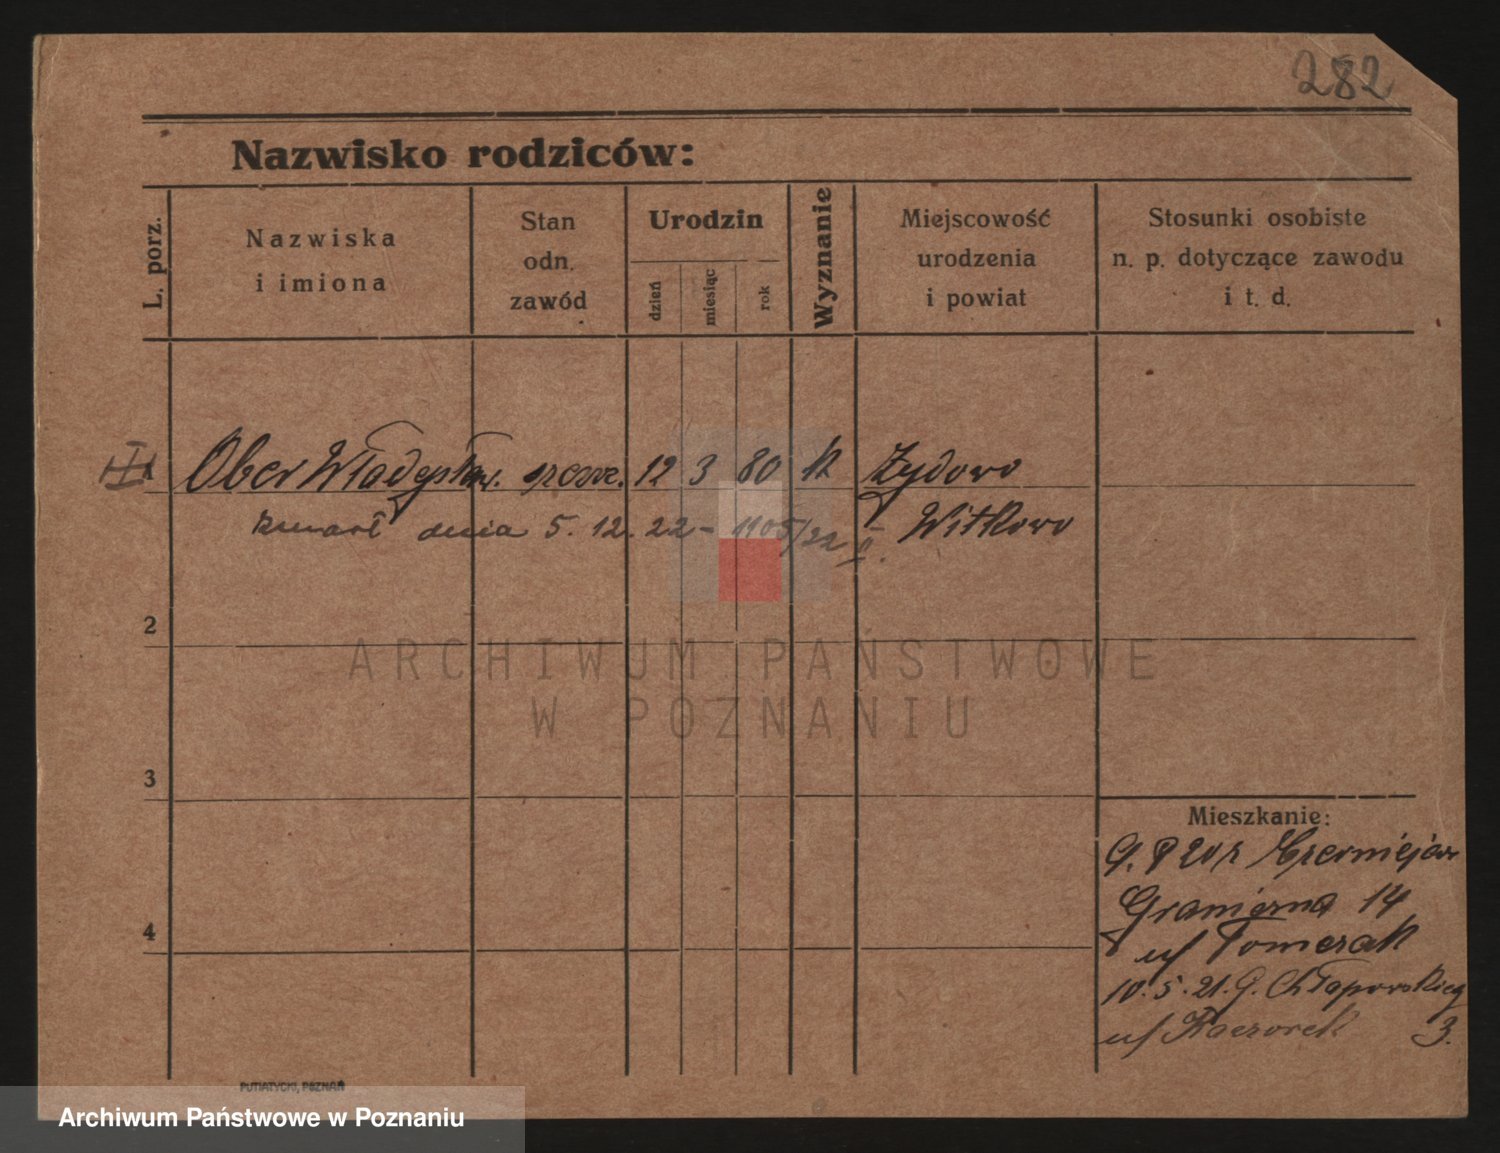 282
Nazwisko rodziców:
L. porz.
Nazwiska
i imiona
Stan
odn.
zawód
Urodzin
dzień
miesiąc
rok
Wyznanie
Miejscowość
urodzenia
i powiat
Stosunki osobiste
n. p. dotyczące zawodu
i t. d.
1 Ober Władysław. 12 3 80 k Żydowo
zmarł dnia 5. 12. 22 - 1105/22 II. Witkowo
2
ARCHIWUM PAŃSTWOWE
W POZNANIU
3
4
Mieszkanie:
Graniczna 14
u/ Tomczak
10. 5. 21. G. Chłapowskieg
u/ Kaczorek 3.
PUTIATYCKI, POZNAŃ
Archiwum Państwowe w Poznaniu